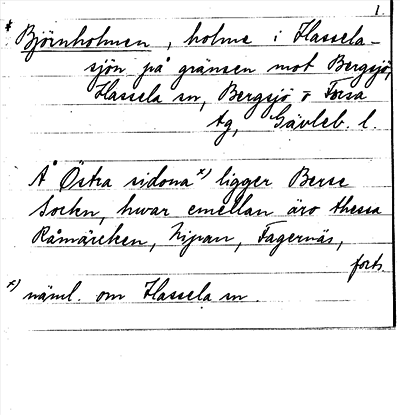 1.
* Björnholmen, holme i Hassela-
sjön på gränsen mot Bergsjö,
Hassela sn, Bergsjö o Forsa
tg, Gävleb. l.
Å Östra sidona x) ligger Berse
Sockn, hwar emellan äro thessa
Råmärcken, Nipan, Fagernäs,
forts.
x) näml. om Hassela sn.